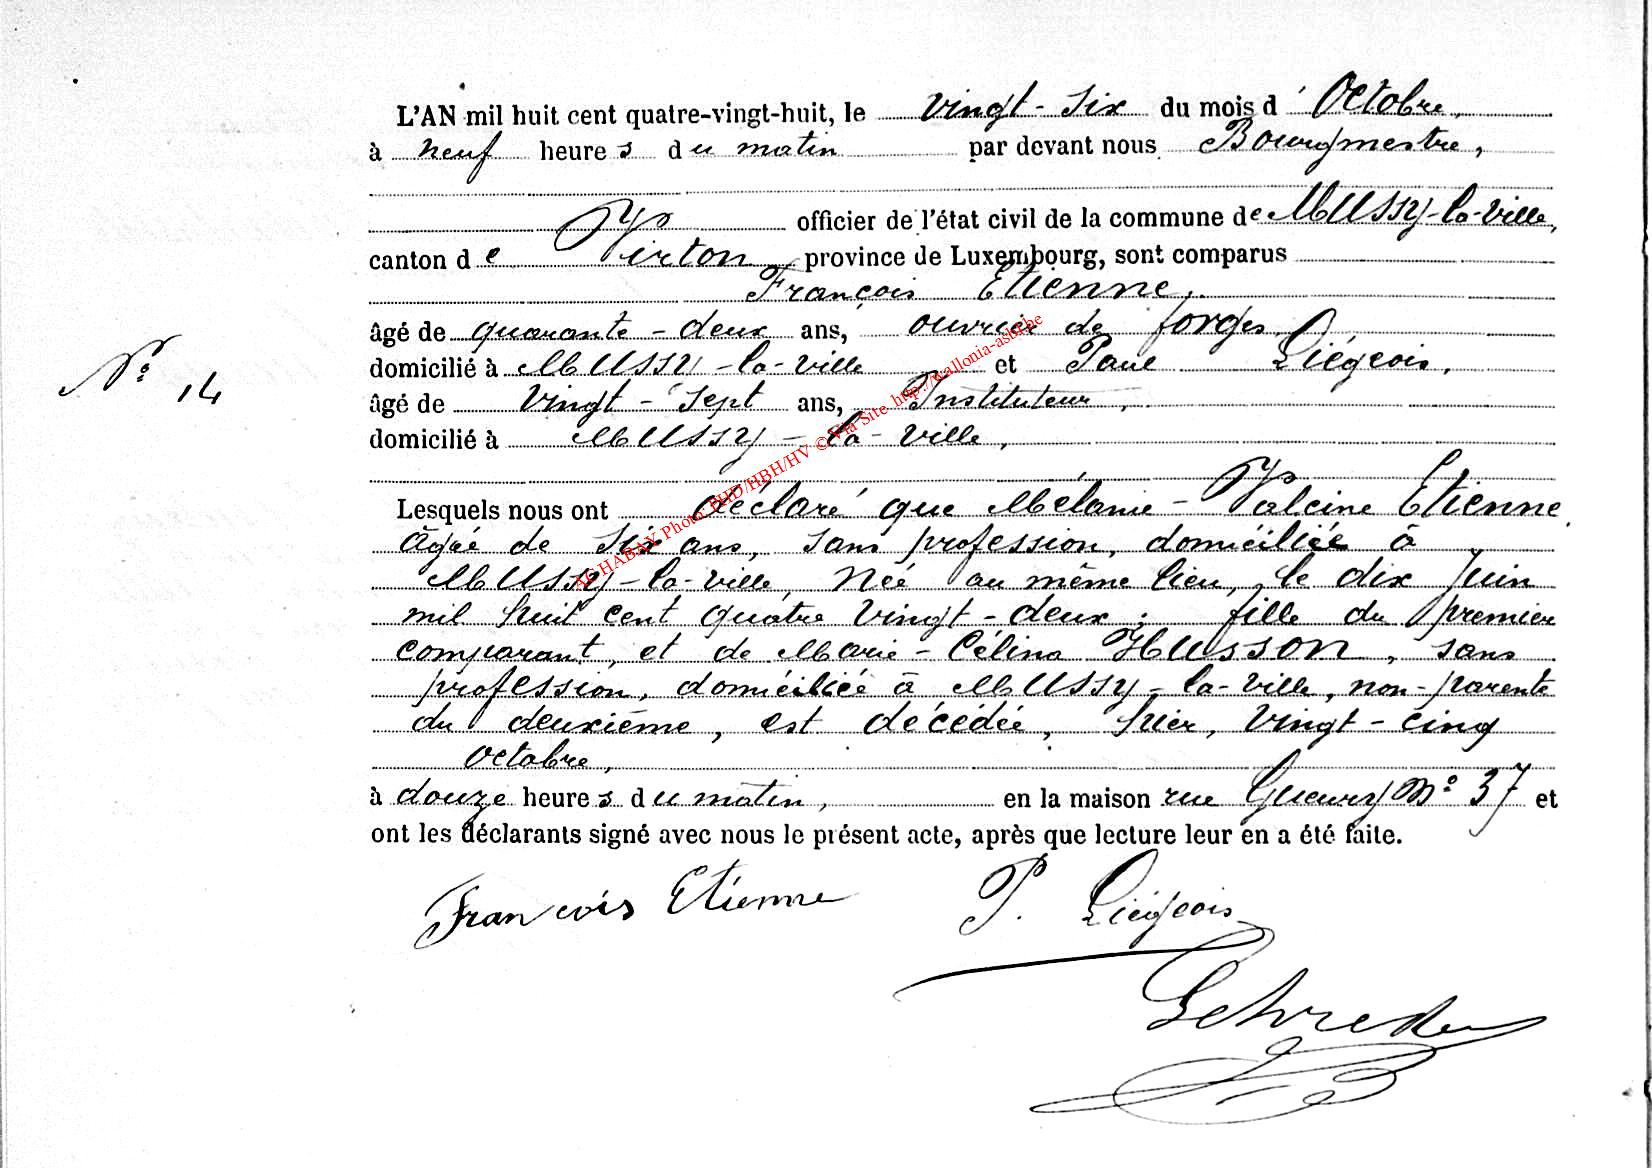 L'AN mil huit cent quatre-vingt-huit, le vingt-six du mois d'Octobre,
à neuf heures du matin par devant nous Bourgmestre,
officier de l'état civil de la commune de Mussy-la-ville,
canton de Virton province de Luxembourg, sont comparus
François Etienne,
âgé de quarante-deux ans, ouvrier de forges
domicilié à Mussy-la-ville et Paul Liégeois,
N° 14
âgé de vingt-sept ans, Instituteur,
domicilié à Mussy-la-ville,
Lesquels nous ont déclaré que Mélanie-Valcine Etienne
âgée de six ans, sans profession, domiciliée à
Mussy-la-ville, née au même lieu, le dix juin
mil huit cent quatre vingt-deux; fille du premier
comparant, et de Marie-Célina Husson, sans
profession, domiciliée à Mussy-la-ville, non-parente
du deuxième, est décédée, hier, vingt-cinq
octobre,
à douze heures du matin, en la maison rue N° 37 et
ont les déclarants signé avec nous le présent acte, après que lecture leur en a été faite.
François Etienne P. Liégeois
AC HABAY Photo: PHD/HBH/HV © Via Site http://wallonia-asbl.be